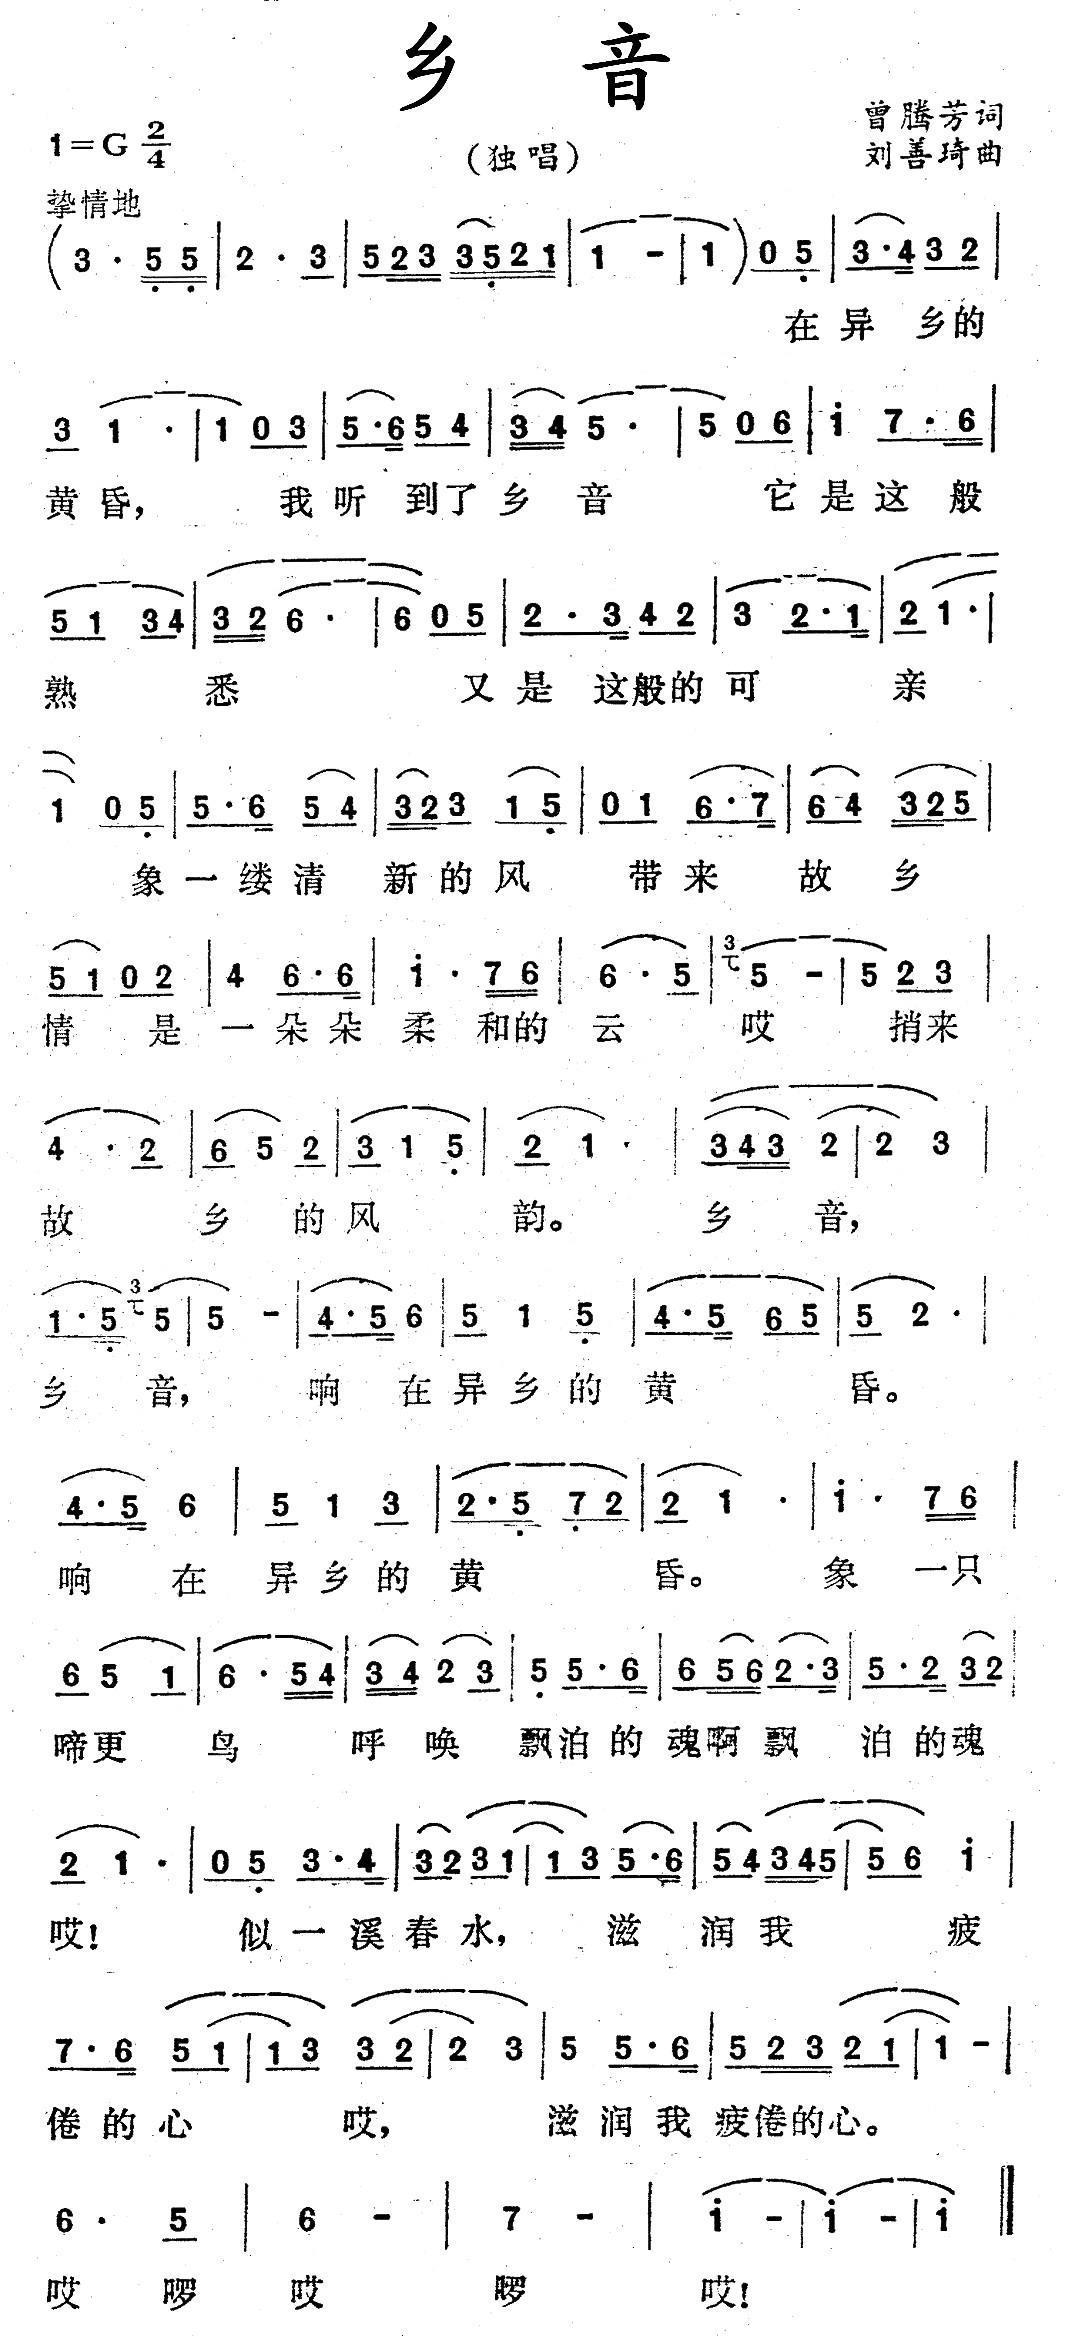 乡 音
1=G 2/4
(独唱)
曾腾芳词
刘善琦曲
挚情地
(3 · 5 5 | 2 · 3 | 5 2 3 3 5 2 1 | 1 - | 1 ) 0 5 | 3 · 4 3 2 |
在异 乡的
3 1 · | 1 0 3 | 5 · 6 5 4 | 3 4 5 · | 5 0 6 | i 7 · 6 |
黄昏, 我听 到了乡 音 它是这 般
5 1 3 4 | 3 2 6 · | 6 0 5 | 2 · 3 4 2 | 3 2 · 1 | 2 1 · |
熟 悉 又是 这般的可 亲
1 0 5 | 5 · 6 5 4 | 3 2 3 1 5 | 0 1 6 · 7 | 6 4 3 2 5 |
象一缕清 新的风 带来 故 乡
5 1 0 2 | 4 6 · 6 | i · 7 6 | 6 · 5 | 3 5 - | 5 2 3 |
情 是 一朵朵 柔 和的 云 哎 捎来
4 · 2 | 6 5 2 | 3 1 5 | 2 1 · | 3 4 3 2 | 2 3 |
故 乡 的风 韵。 乡 音,
1 · 5 3 5 | 5 - | 4 · 5 6 | 5 1 5 | 4 · 5 6 5 | 5 2 · |
乡 音, 响 在异乡的黄 昏。
4 · 5 6 | 5 1 3 | 2 · 5 7 2 | 2 1 · | i · 7 6 |
响 在 异乡的黄 昏。 象 一只
6 5 1 | 6 · 5 4 | 3 4 2 3 | 5 5 · 6 | 6 5 6 2 · 3 | 5 · 2 3 2 |
啼更 鸟 呼唤 飘泊的魂啊飘 泊的魂
2 1 · | 0 5 3 · 4 | 3 2 3 1 | 1 3 5 · 6 | 5 4 3 4 5 | 5 6 i |
哎! 似一溪春水, 滋 润我 疲
7 · 6 5 1 | 1 3 3 2 | 2 3 | 5 5 · 6 | 5 2 3 2 1 | 1 - |
倦的心 哎, 滋润我疲倦的心。
6 · 5 | 6 - | 7 - | i - | i - | i ‖
哎 啰 哎 啰 哎!